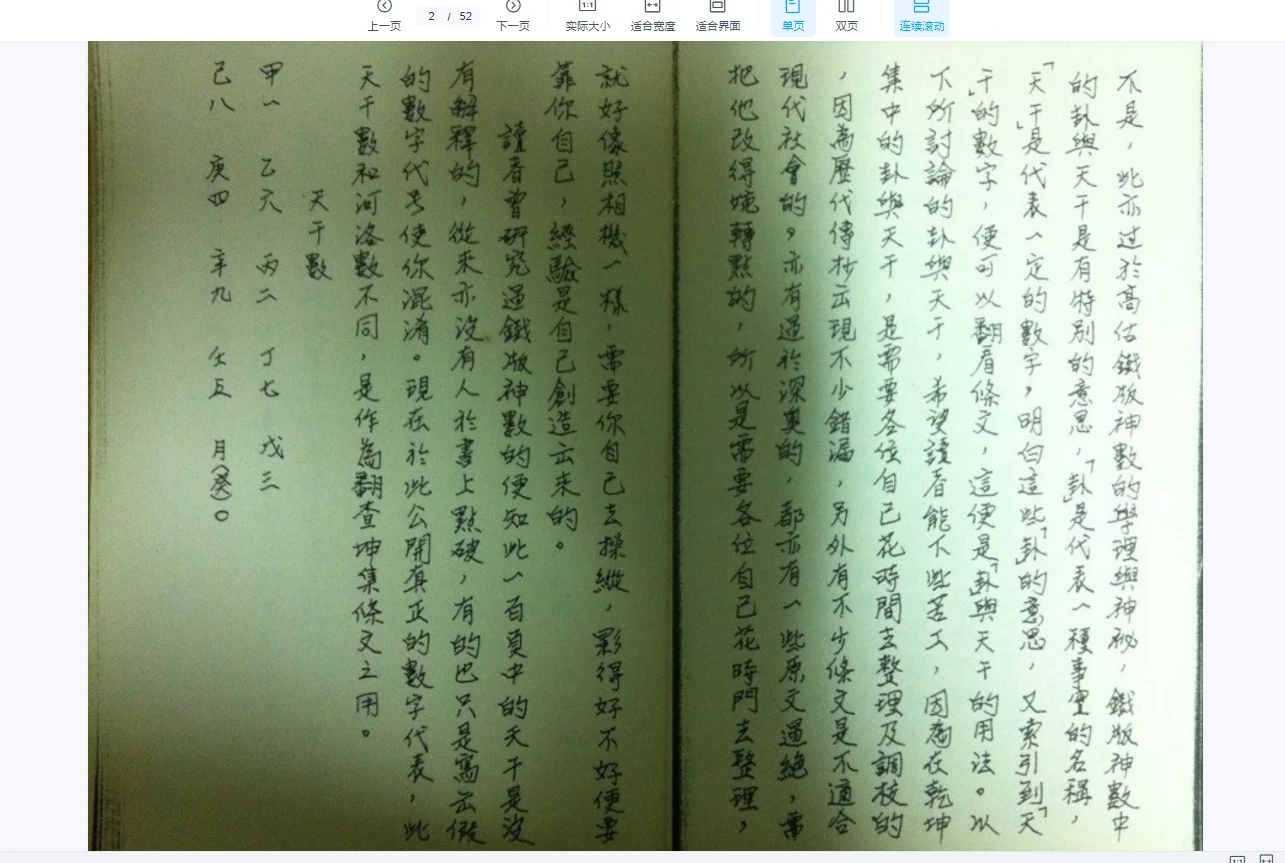 上一页
2 / 52
下一页
实际大小
适合宽度
适合界面
单页
双页
连续滚动
不是，此亦过於高估鐵版神數的學理與神祕，鐵版神數中
的卦與天干是有特別的意思，「卦」是代表一種事實的名稱，
「天干」是代表一定的數字，明白這些「卦」的意思，又索引到「天
干」的數字，便可以翻看條文，這便是「卦」與天干的用法。以
下所討論的卦與天干，希望讀者能下些苦工，因為在乾坤
集中的卦與天干，是需要各位自己花時間去整理及調校的
，因為歷代傳抄出現不少錯漏，另外有不少條文是不適合
現代社會的，亦有過於深奧的，都亦有一些原文過絕，需
把他改得婉轉點的，所以是需要各位自己花時間去整理，
就好像照相機一樣，需要你自己去操縱，影得好不好便要
靠你自己，經驗是自己創造出來的。
讀者曾研究過鐵版神數的便知此一百頁中的天干是沒
有解釋的，從來亦沒有人於書上點破，有的巴只是寫出假
的數字代号使你混淆。現在於此公開真正的數字代表，此
天干數和河洛數不同，是作為翻查坤集條文之用。
天干數
甲一 乙六 丙二 丁七 戊三
己八 庚四 辛九 仧五 月(癸)〇
1:1